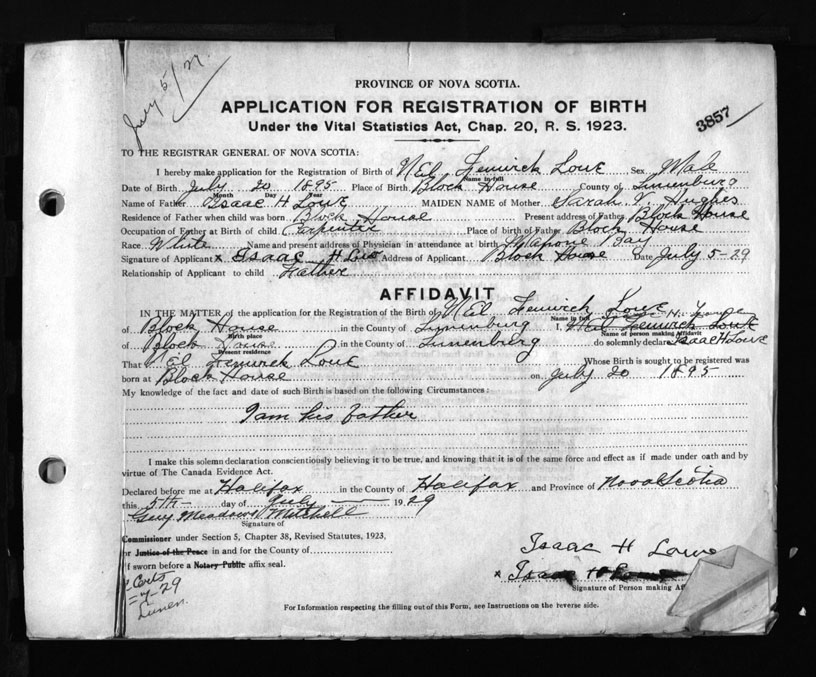 July 5/29
PROVINCE OF NOVA SCOTIA.
APPLICATION FOR REGISTRATION OF BIRTH
Under the Vital Statistics Act, Chap. 20, R. S. 1923.
3857
TO THE REGISTRAR GENERAL OF NOVA SCOTIA:
I hereby make application for the Registration of Birth of Nel Fenwick Lowe Sex Male
Name in full
Date of Birth July 20 1895 Place of Birth Block House County of Lunenburg
Month Day Year
Name of Father Isaac H Lowe MAIDEN NAME of Mother Sarah V. Hughes
Residence of Father when child was born Block House Present address of Father Block House
Occupation of Father at Birth of child Carpenter Place of birth of Father Block House
Race White Name and present address of Physician in attendance at birth Mahone Bay
Signature of Applicant x Isaac H Low Address of Applicant Block House Date July 5-29
Relationship of Applicant to child Father
AFFIDAVIT
IN THE MATTER of the application for the Registration of the Birth of Nel Fenwick Lowe
Name in full
of Block House in the County of Lunenburg I, Nel Fenwick Lowe
Birth place Name of person making Affidavit
of Block House in the County of Lunenburg do solemnly declare Isaac H Lowe
Present residence
That Nel Fenwick Lowe Whose Birth is sought to be registered was
born at Block House on July 20 1895
My knowledge of the fact and date of such Birth is based on the following Circumstances:
I am his father
I make this solemn declaration conscientiously believing it to be true, and knowing that it is of the same force and effect as if made under oath and by
virtue of The Canada Evidence Act.
Declared before me at Halifax in the County of Halifax and Province of Nova Scotia
this 5th day of July 1929
Guy Meadows Mitchell
Signature of
Commissioner under Section 5, Chapter 38, Revised Statutes, 1923,
or Justice of the Peace in and for the County of
If sworn before a Notary Public affix seal.
Isaac H Lowe
x Isaac H
Signature of Person making Aff
29
Lunen.
For Information respecting the filling out of this Form, see Instructions on the reverse side.